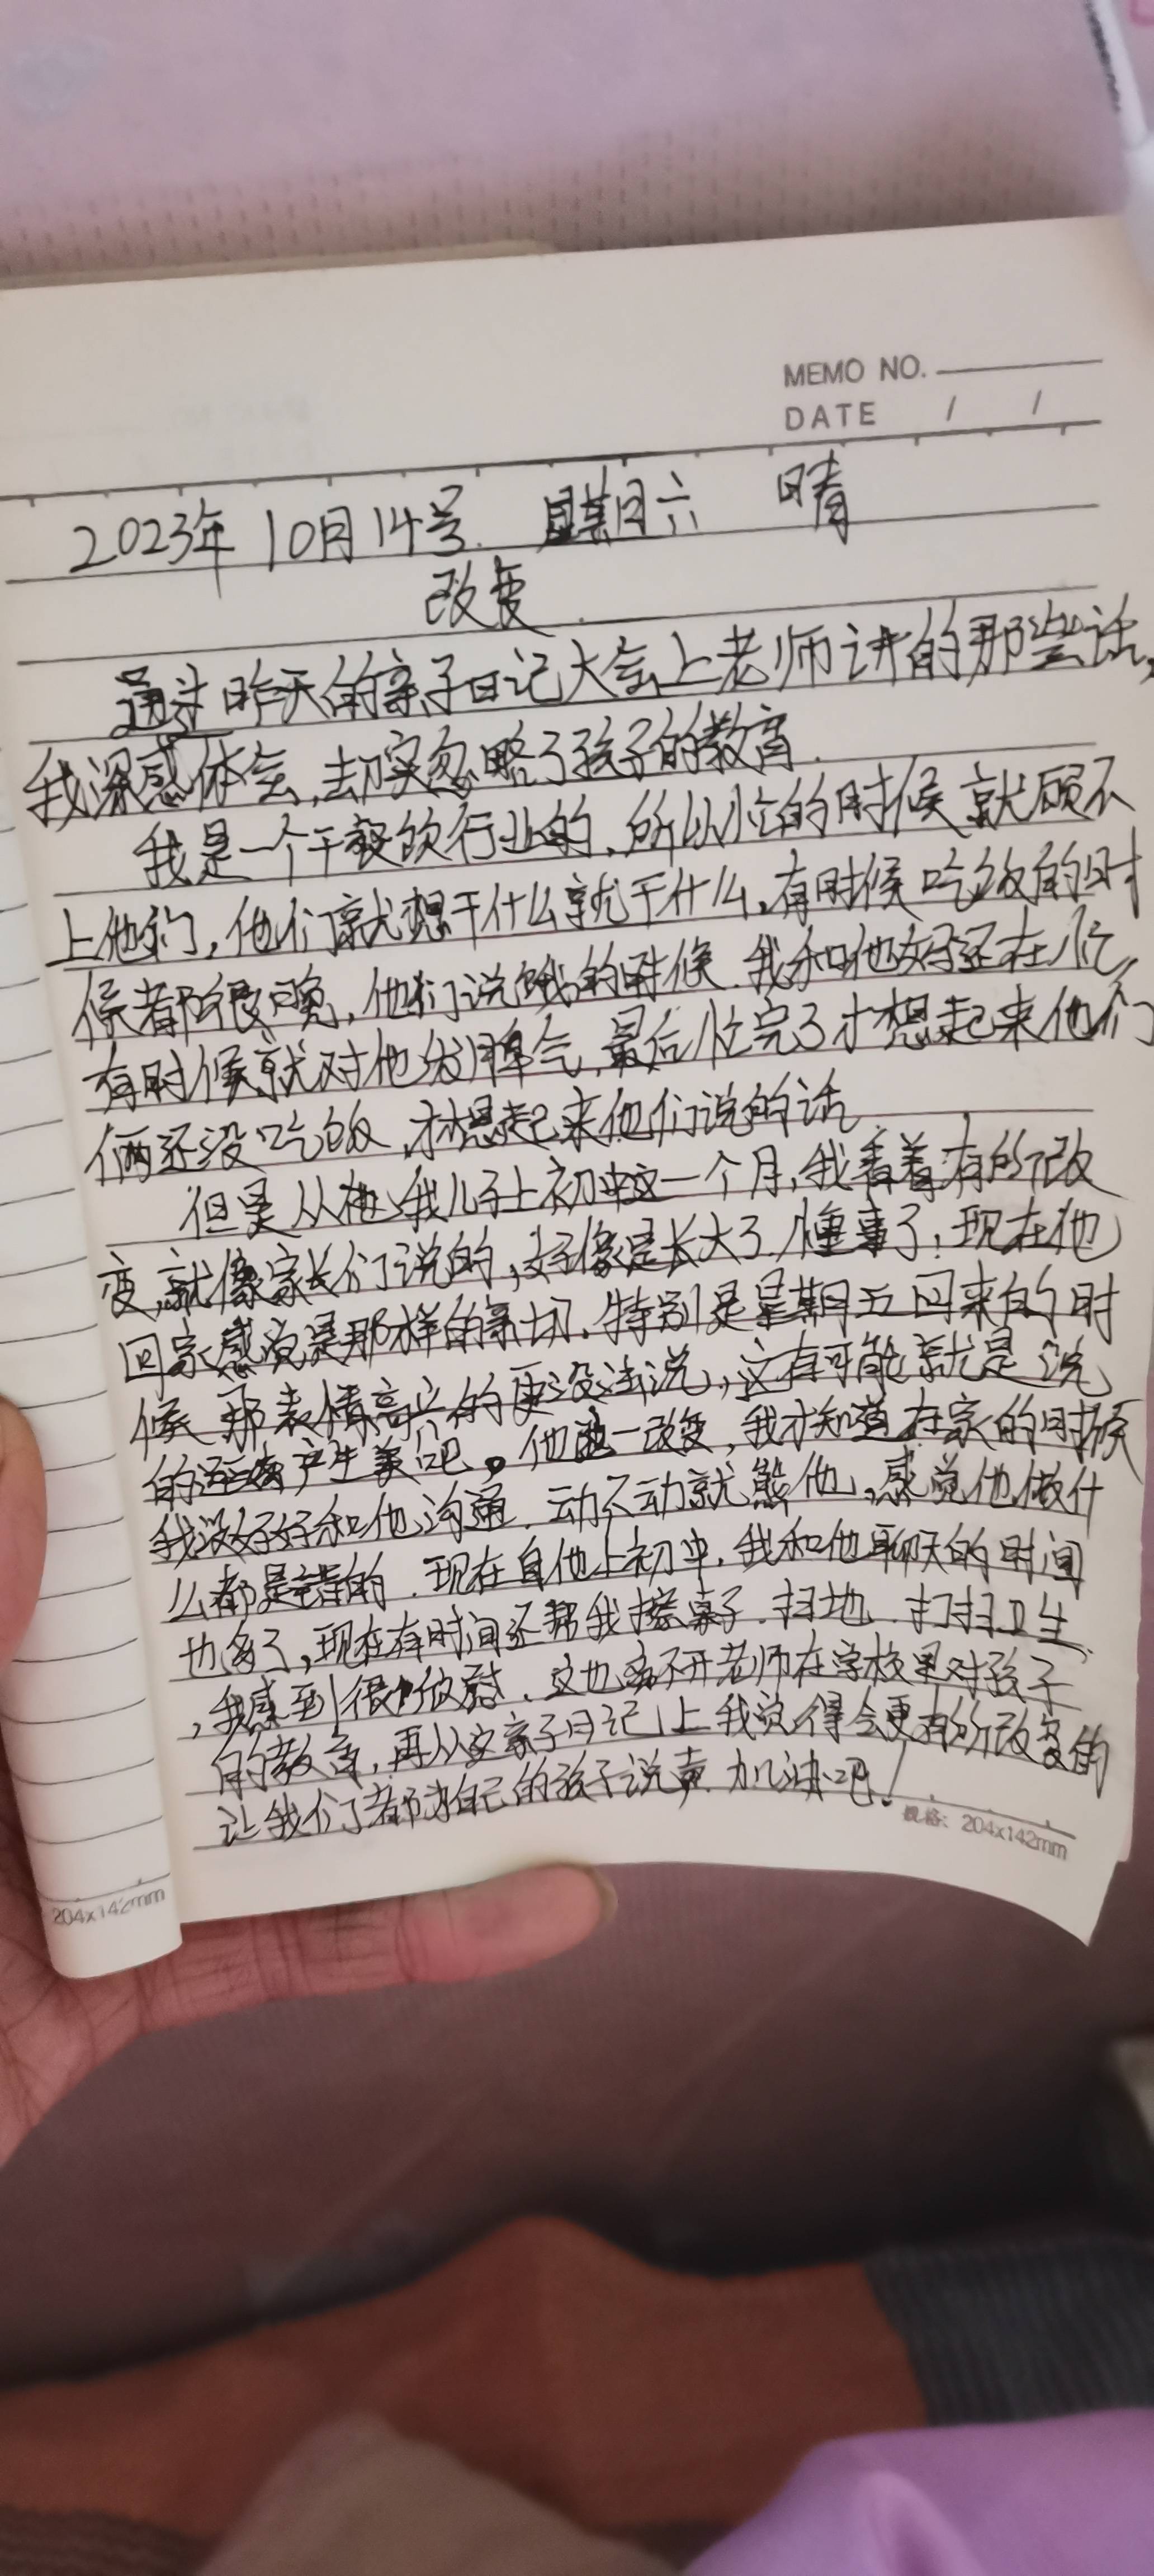 MEMO NO.
DATE / /
2023年10月14号. 星期六 晴
改变.
通过昨天的亲子日记大会上老师讲的那些话,
我深感体会,却实忽略了孩子的教育.
我是一个干餐饮行业的,所以忙的时候就顾不
上他们,他们就想干什么就干什么,有时候吃饭的时
候都很晚,他们说饿的时候.我和他好还在忙,
有时候就对他发脾气,最后忙完了才想起来他们
俩还没吃饭,才想起来他们说的话.
但是从我儿子上初中这一个月,我看着有所改
变,就像家长们说的,好像是长大了,懂事了,现在他
回家感觉是那样的亲切.特别是星期五回来的时
候 那表情高兴的更没法说,这有可能就是说
的距离产生美吧。他这一改变,我才知道在家的时候
我没好好和他沟通.动不动就熊他,感觉他做什
么都是错的.现在自他上初中.我和他聊天的时间
也多了,现在有时间还帮我擦桌子.扫地.打扫卫生
,我感到很欣慰.这也离不开老师在学校里对孩子
的教育,再从这亲子日记上我觉得会更有所改变的
让我们都为自己的孩子说声 加油吧!
规格: 204x142mm
204x142mm